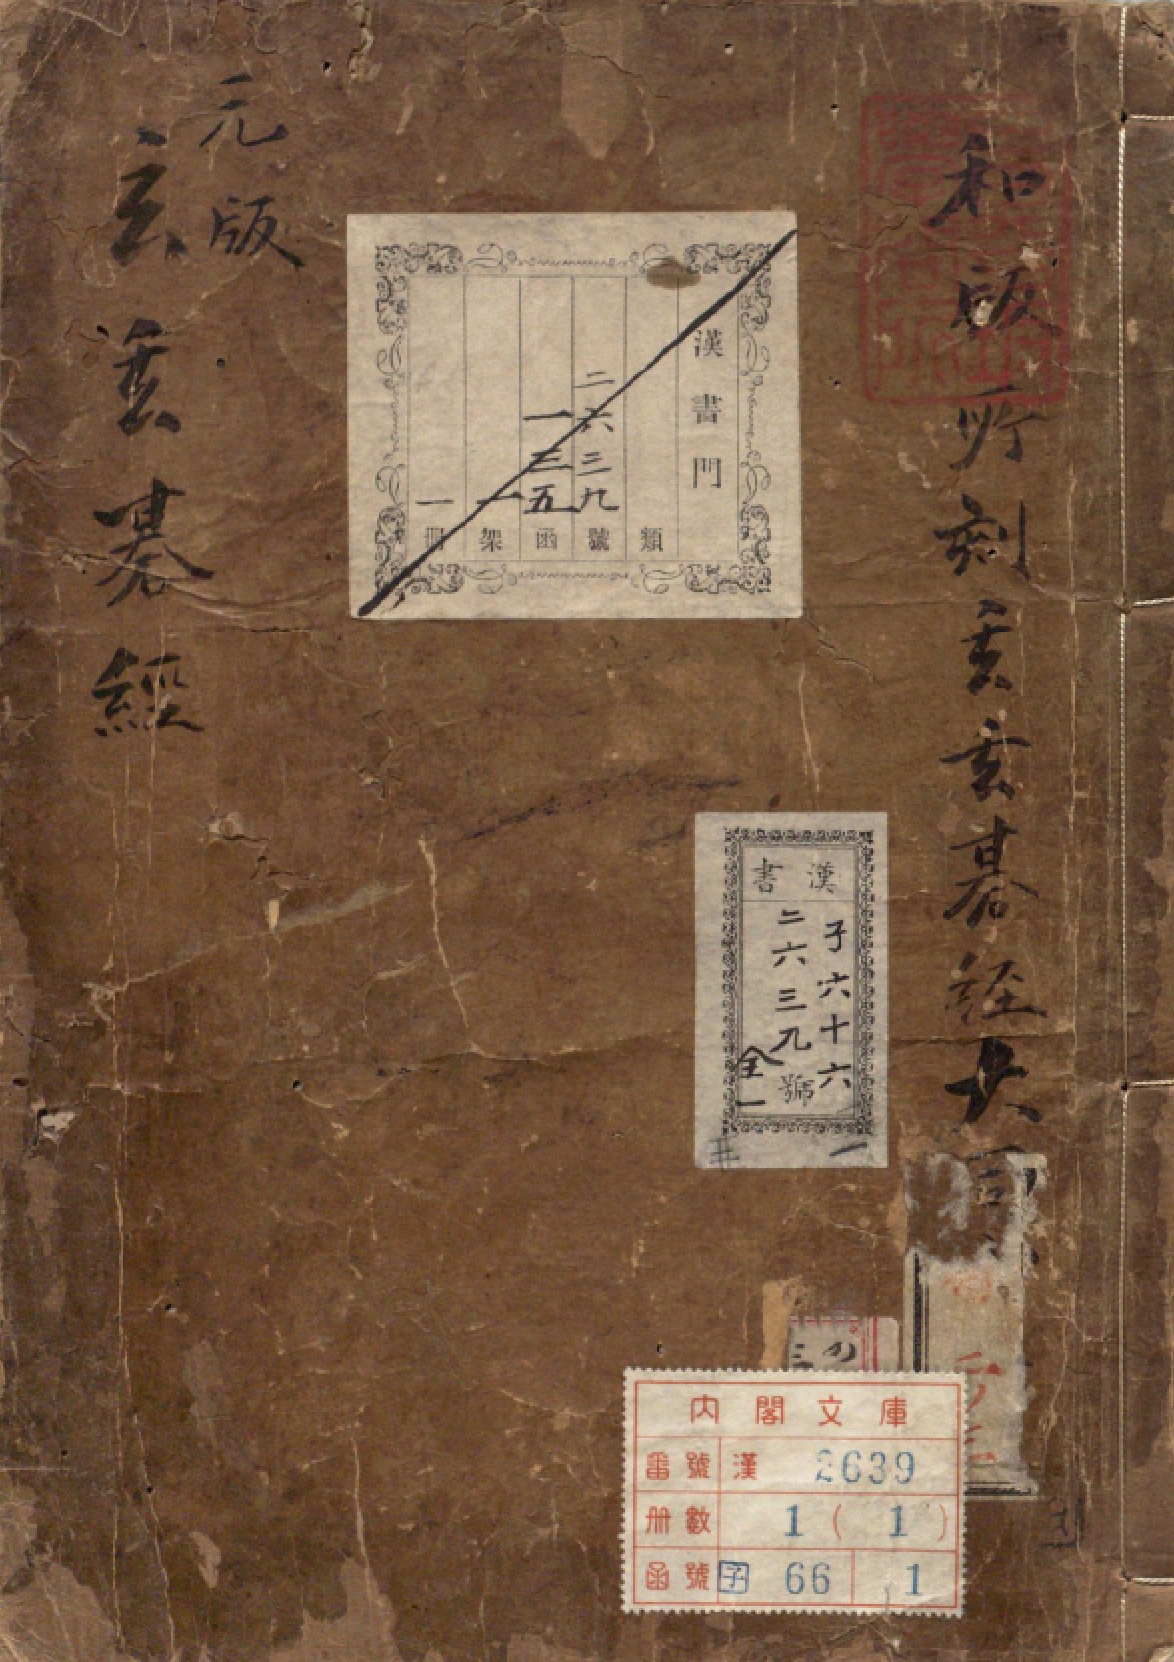 和版所刻玄玄碁経大同
漢書門
類
二六三九號
一三五函
一架
一冊
元版
玄玄碁經
漢書
子六十六
二六三九號
全一
一
の
三
内閣文庫
番號 漢 2639
冊數 1 ( 1 )
函號 子 66 1